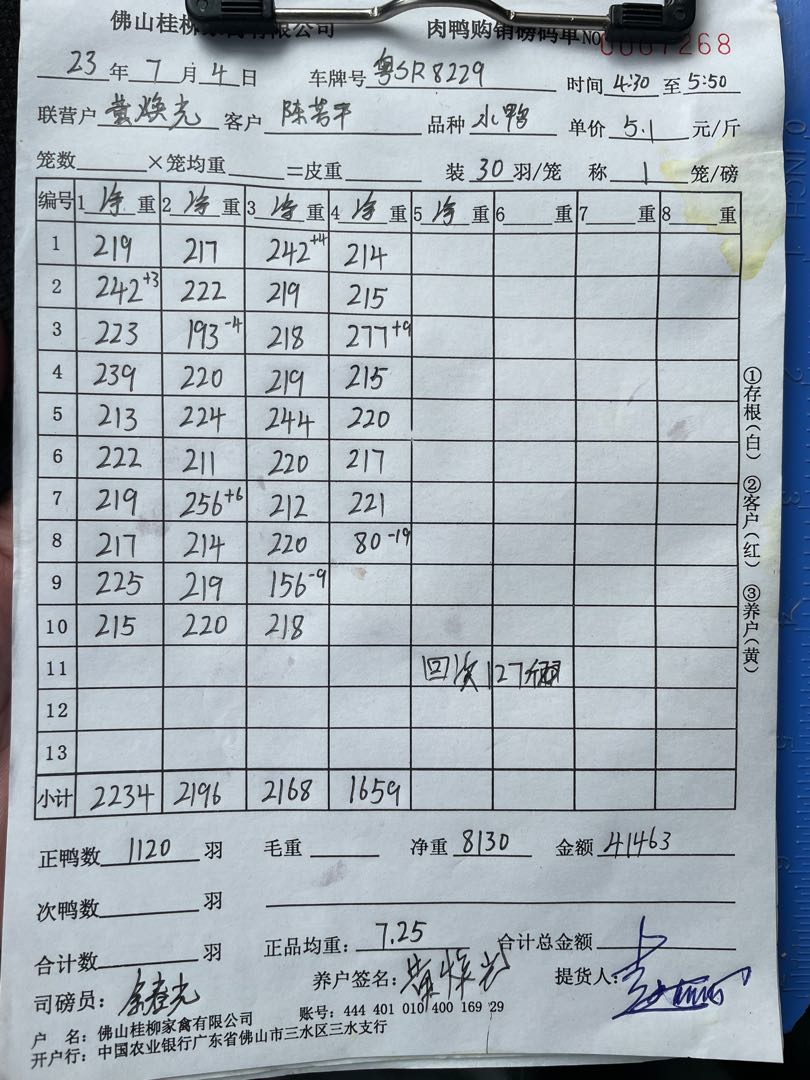 佛山桂柳家禽有限公司 肉鸭购销磅码单 NO 0007268
23 年 7 月 4 日 车牌号 粤SR8229 时间 4:30 至 5:50
联营户 黄焕光 客户 陈若平 品种 水鸭 单价 5.1 元/斤
笼数 ×笼均重 =皮重 装 30 羽/笼 称 1 笼/磅
编号 1 净 重 2 净 重 3 净 重 4 净 重 5 净 重 6 重 7 重 8 重
1 219 217 242+4 214
2 242+3 222 219 215
3 223 193-4 218 277+9
4 239 220 219 215
5 213 224 244 220
6 222 211 220 217
7 219 256+6 212 221
8 217 214 220 80-19
9 225 219 156-9
10 215 220 218
11 回 127
12
13
小计 2234 2196 2168 1659
正鸭数 1120 羽 毛重 净重 8130 金额 41463
次鸭数 羽
合计数 羽 正品均重: 7.25 合计总金额
养户签名: 黄焕光 提货人:
司磅员:
户 名: 佛山桂柳家禽有限公司 账号: 444 401 010 400 169 29
开户行: 中国农业银行广东省佛山市三水区三水支行
①存根(白) ②客户(红) ③养户(黄)